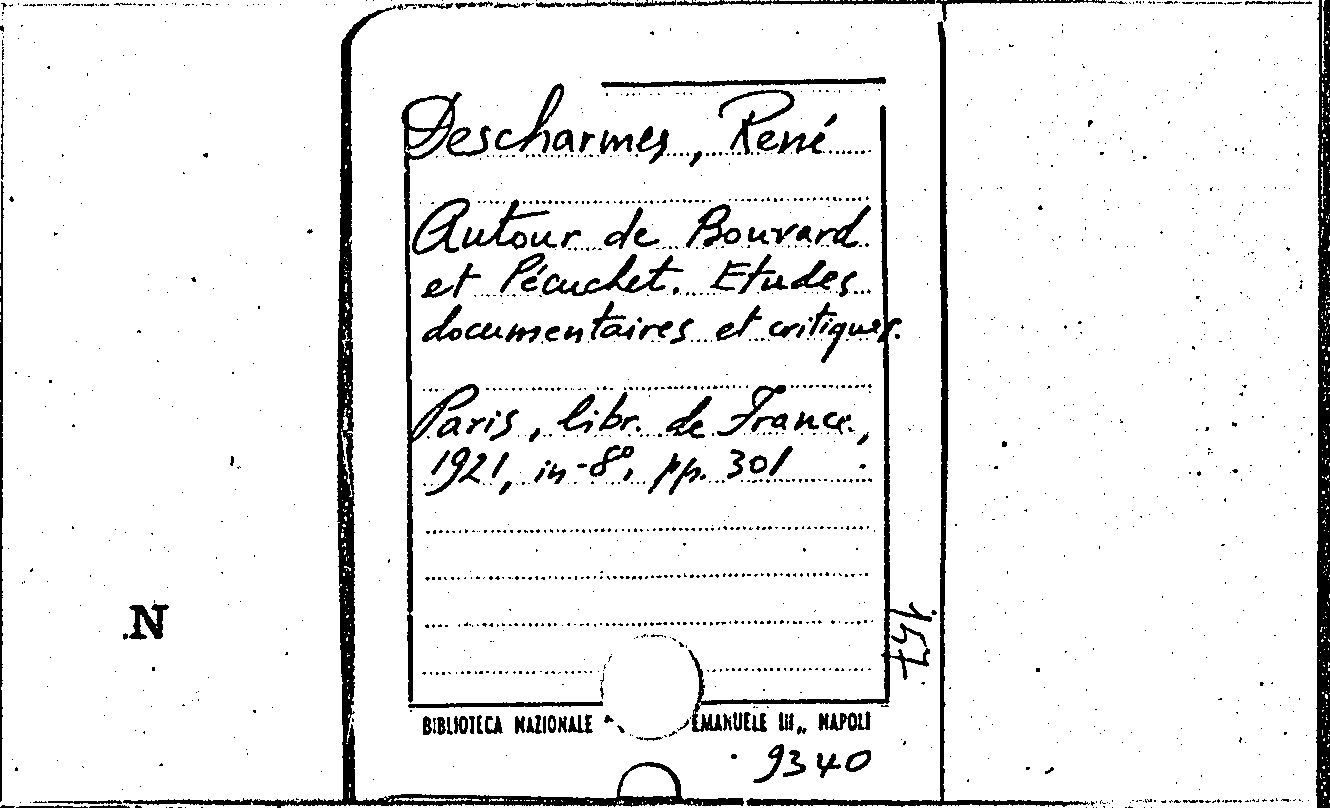 Descharmes, René
Autour de Bouvard
et Pécuchet. Etudes
documentaires et critiques.
Paris, libr. de France,
1921, in-8º, pp. 301
N
157
BIBLIOTECA NAZIONALE " EMANUELE III,, NAPOLI
9340